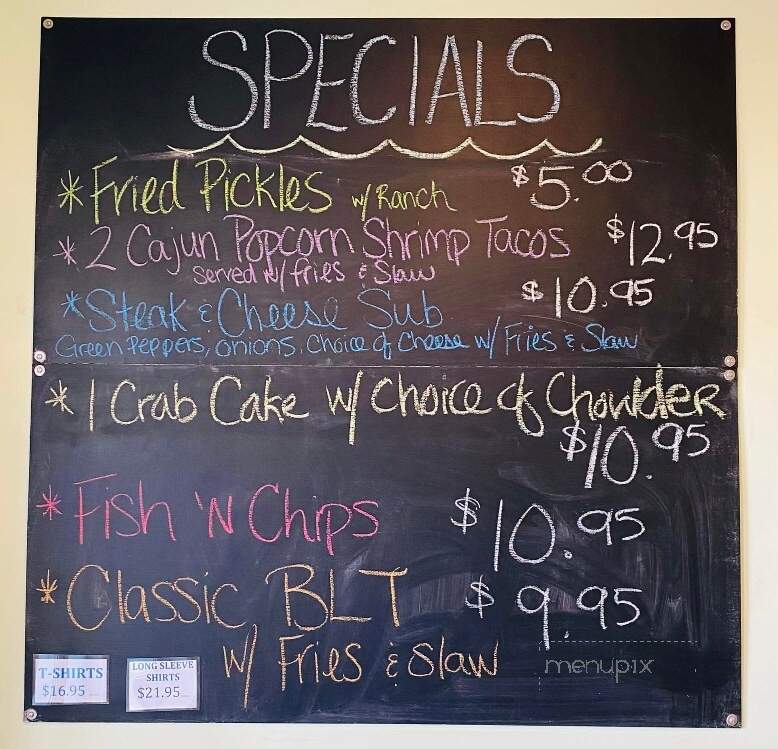 SPECIALS
* Fried Pickles w/ Ranch $5.00
* 2 Cajun Popcorn Shrimp Tacos $12.95
Served w/ fries & Slaw
* Steak & Cheese Sub $10.95
Green Peppers, onions, Choice of Cheese w/ Fries & Slaw
* 1 Crab Cake w/ Choice of Chowder
$10.95
* Fish 'N Chips $10.95
* Classic BLT $9.95
w/ Fries & Slaw
T-SHIRTS
$16.95
LONG SLEEVE
SHIRTS
$21.95
menupix